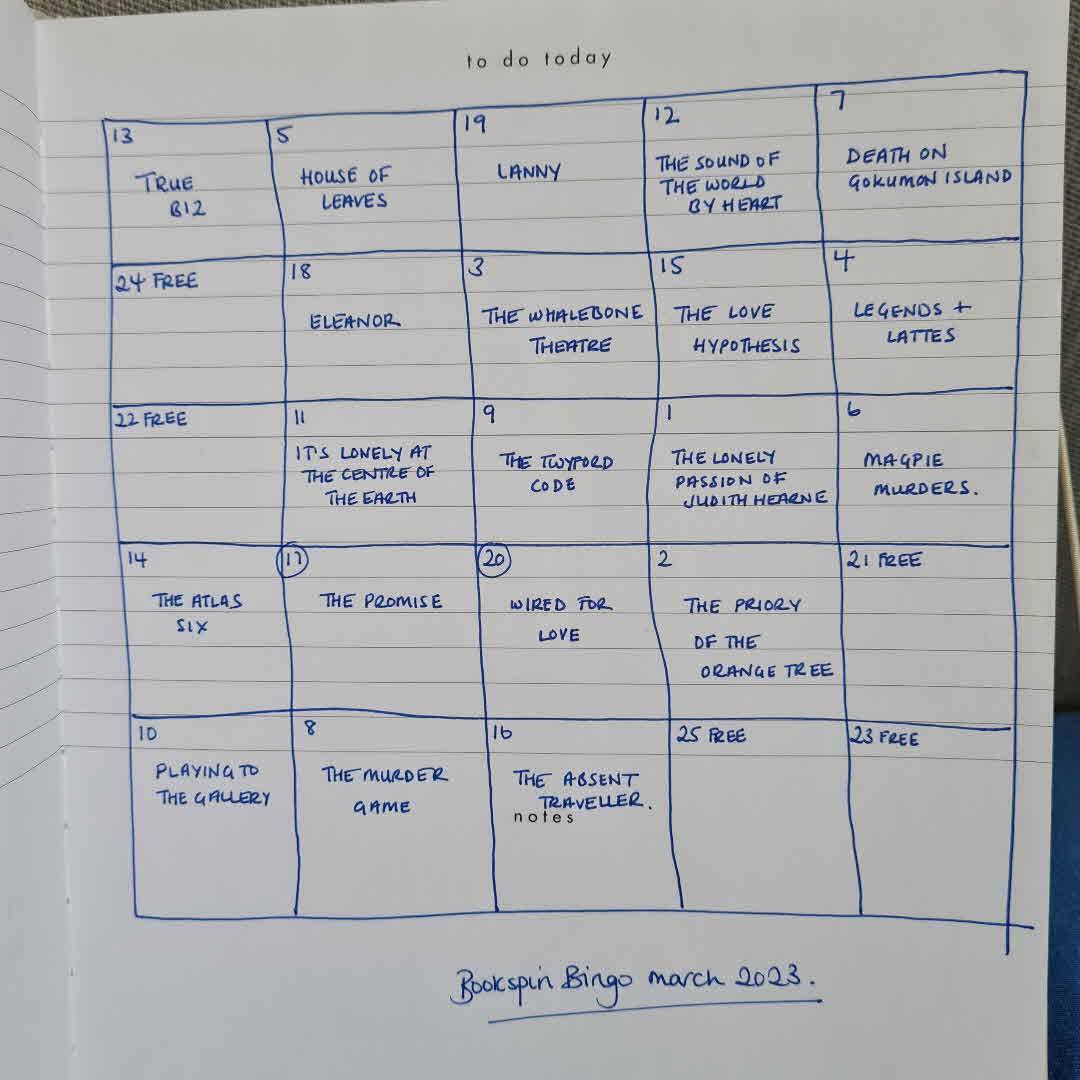 to do today
13
TRUE
BIZ
5
HOUSE OF
LEAVES
19
LANNY
12
THE SOUND OF
THE WORLD
BY HEART
7
DEATH ON
GOKUMON ISLAND
24 FREE
18
ELEANOR
3
THE WHALEBONE
THEATRE
15
THE LOVE
HYPOTHESIS
4
LEGENDS +
LATTES
22 FREE
11
IT'S LONELY AT
THE CENTRE OF
THE EARTH
9
THE TWYFORD
CODE
1
THE LONELY
PASSION OF
JUDITH HEARNE
6
MAGPIE
MURDERS.
14
THE ATLAS
SIX
17
THE PROMISE
20
WIRED FOR
LOVE
2
THE PRIORY
OF THE
ORANGE TREE
21 FREE
10
PLAYING TO
THE GALLERY
8
THE MURDER
GAME
16
THE ABSENT
TRAVELLER.
notes
25 FREE
23 FREE
Bookspin Bingo march 2023.